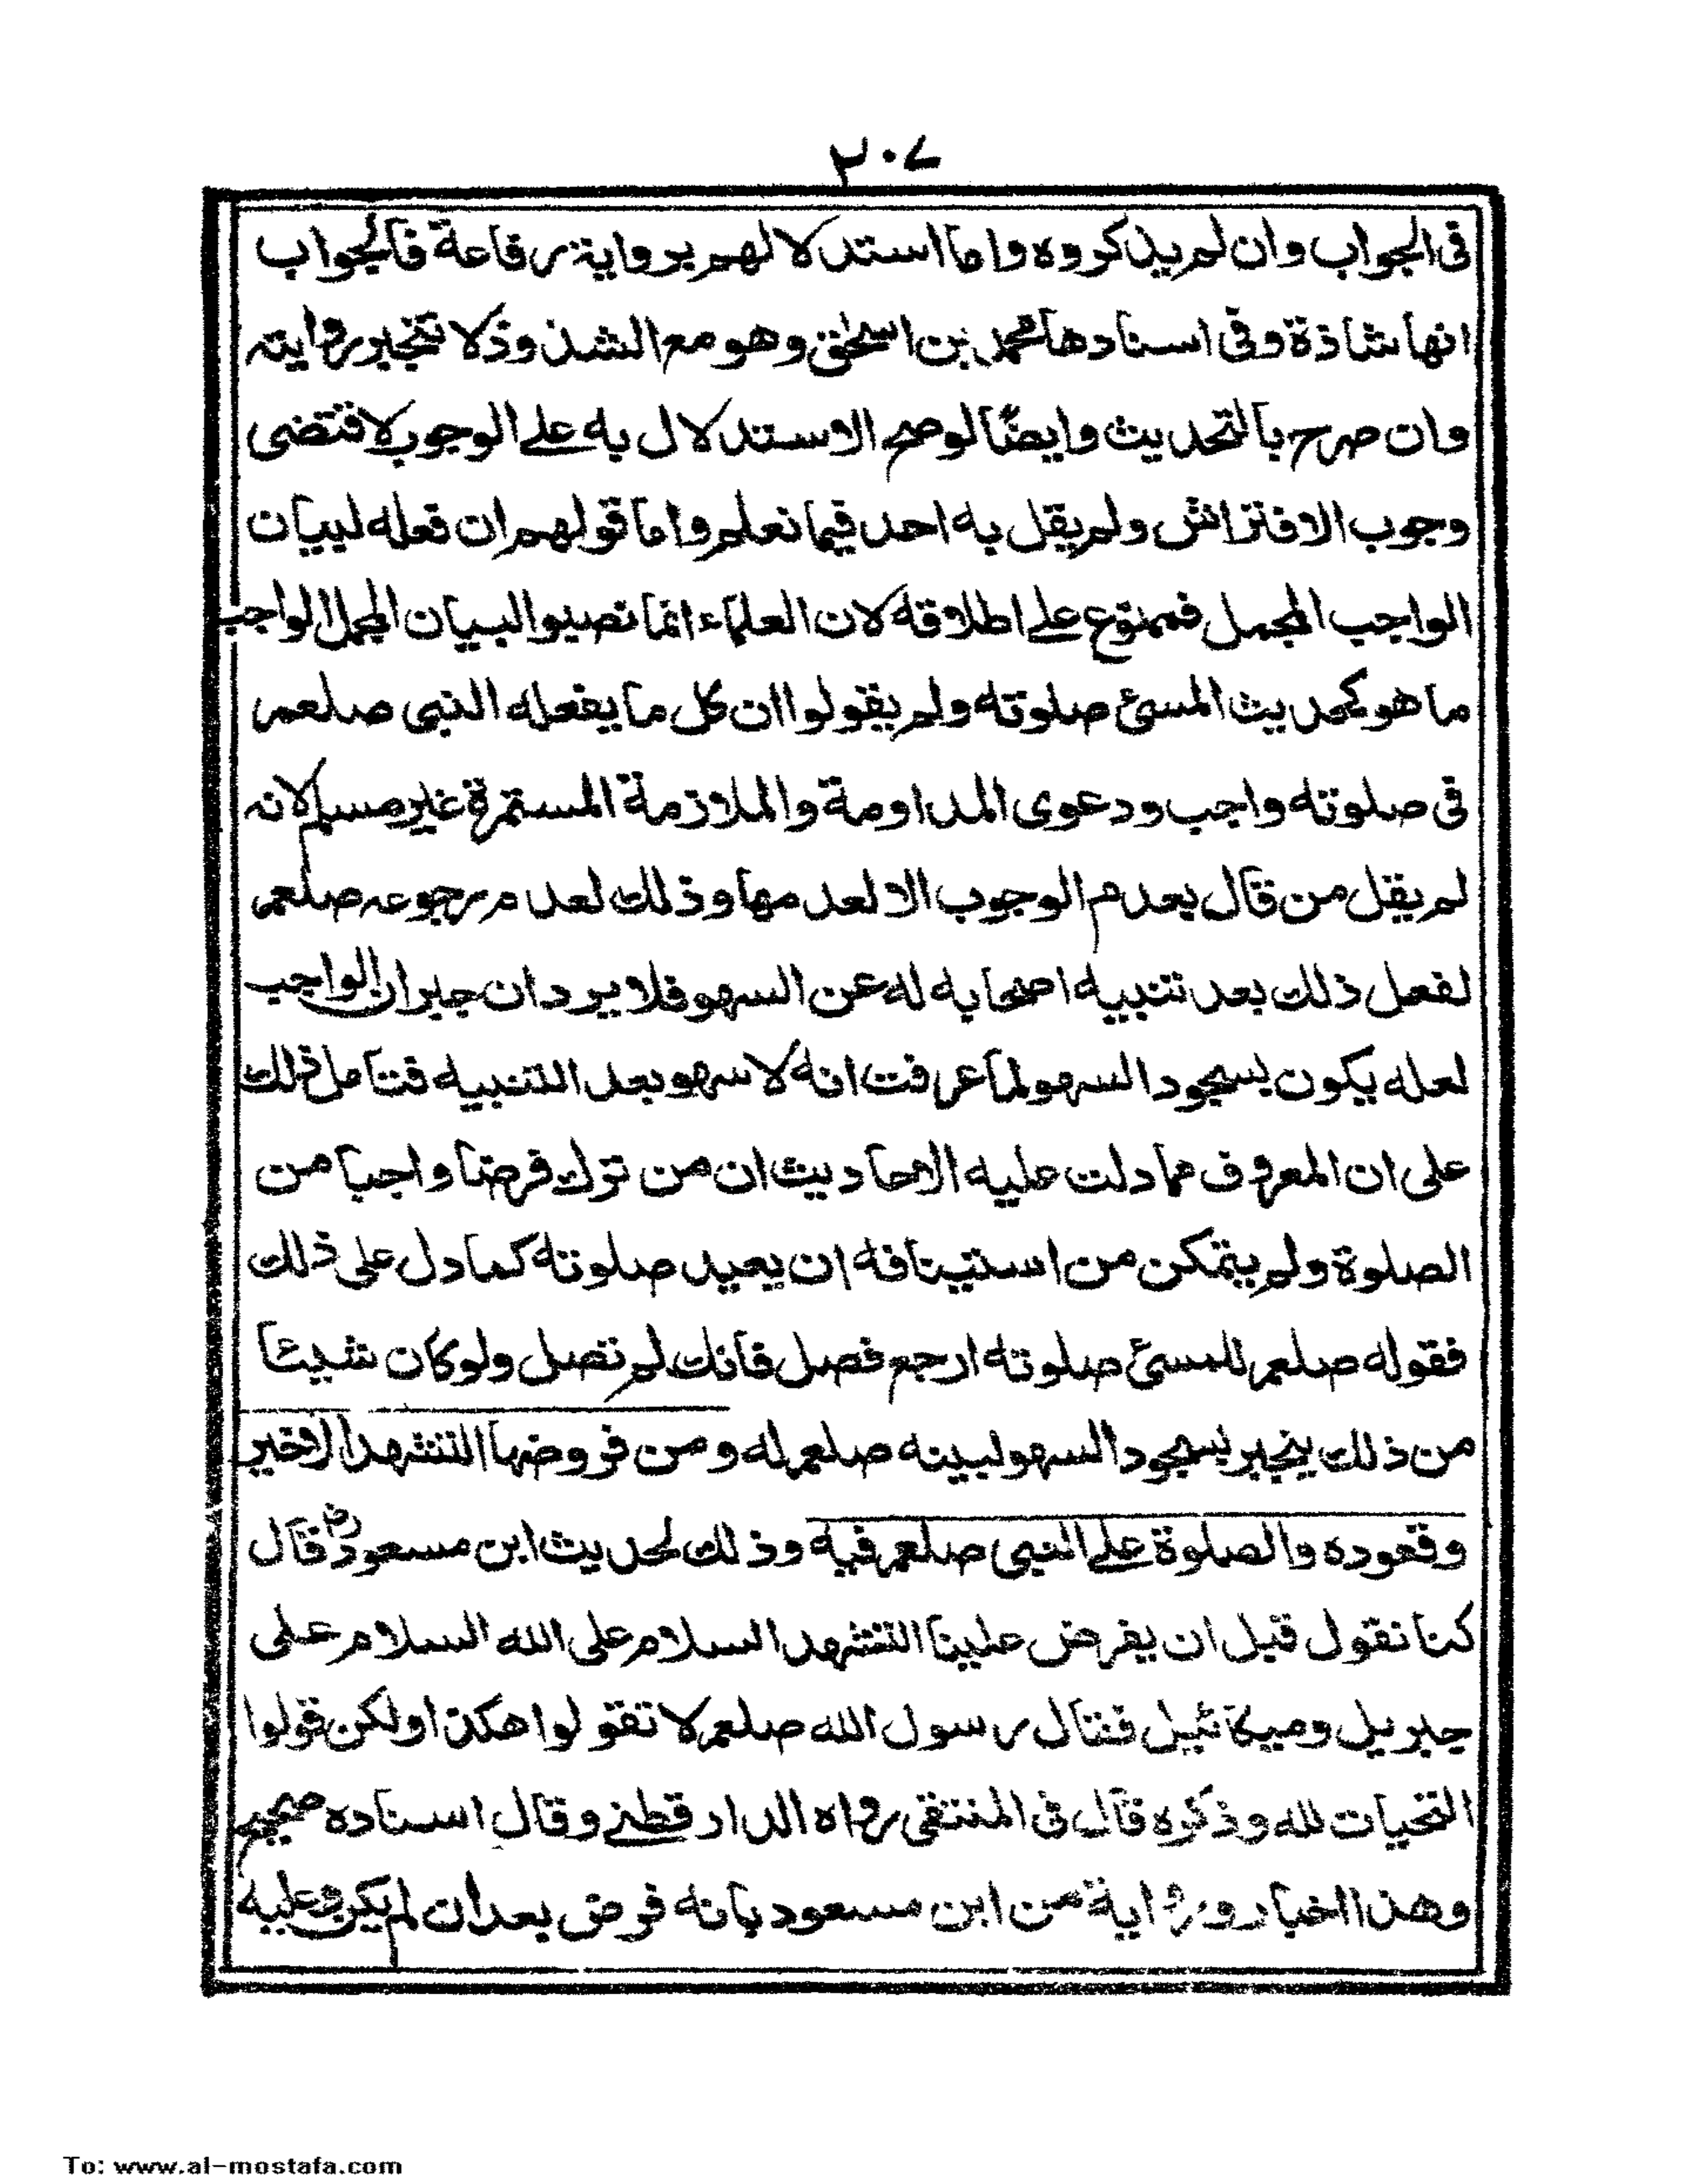 ٢٠٧
فى الجواب وان لم يذكروه واما استدلالهم برواية رفاعة فالجواب
انها شاذة وفى اسنادها محمد بن اسحٰق وهو مع الشذوذ لا تنجبر روايته
وان صرح بالتحديث وايضًا لو صح الاستدلال به على الوجوب لاقتضى
وجوب الافتراش ولم يقل به احد فيما نعلم واما قولهم ان فعله لبيان
الواجب المجمل فممنوع على اطلاقه لان العلماء انما نصبوا لبيان المجمل الواجب
ما هو كحديث المسئ صلوته ولم يقولوا ان كل ما يفعله النبى صلعم
فى صلوته واجب ودعوى المداومة والملازمة المستمرة غير مسلم لانه
لم يقل من قال بعدم الوجوب الا لعدمها وذلك لعدم رجوعه صلعم
لفعل ذلك بعد تنبيه اصحابه له عن السهو فلا يرد ان جبران الواجب
لعله يكون بسجود السهو لما عرفت انه لا سهو بعد التنبيه فتامل ذلك
على ان المعروف مما دلت عليه الاحاديث ان من ترك فرضا واجبا من
الصلوة ولم يتمكن من استينافه ان يعيد صلوته كما دل على ذلك
فقوله صلعم للمسئ صلوته ارجع فصل فانك لم تصل ولو كان شيئا
من ذلك ينجبر بسجود السهو لبينه صلعم له ومن فروضها التشهد الاخير
وقعوده والصلوة على النبى صلعم فيه وذلك لحديث ابن مسعود رض قال
كنا نقول قبل ان يفرض علينا التشهد السلام على الله السلام على
جبريل وميكائيل فقال رسول الله صلعم لا تقولوا هكذا ولكن قولوا
التحيات لله وذكره قال فى المنتقى رواه الدارقطنى وقال اسناده صحيح
وهذا اخبار ورواية من ابن مسعود بانه فرض بعد ان لم يكن وعليه
To: www.al-mostafa.com